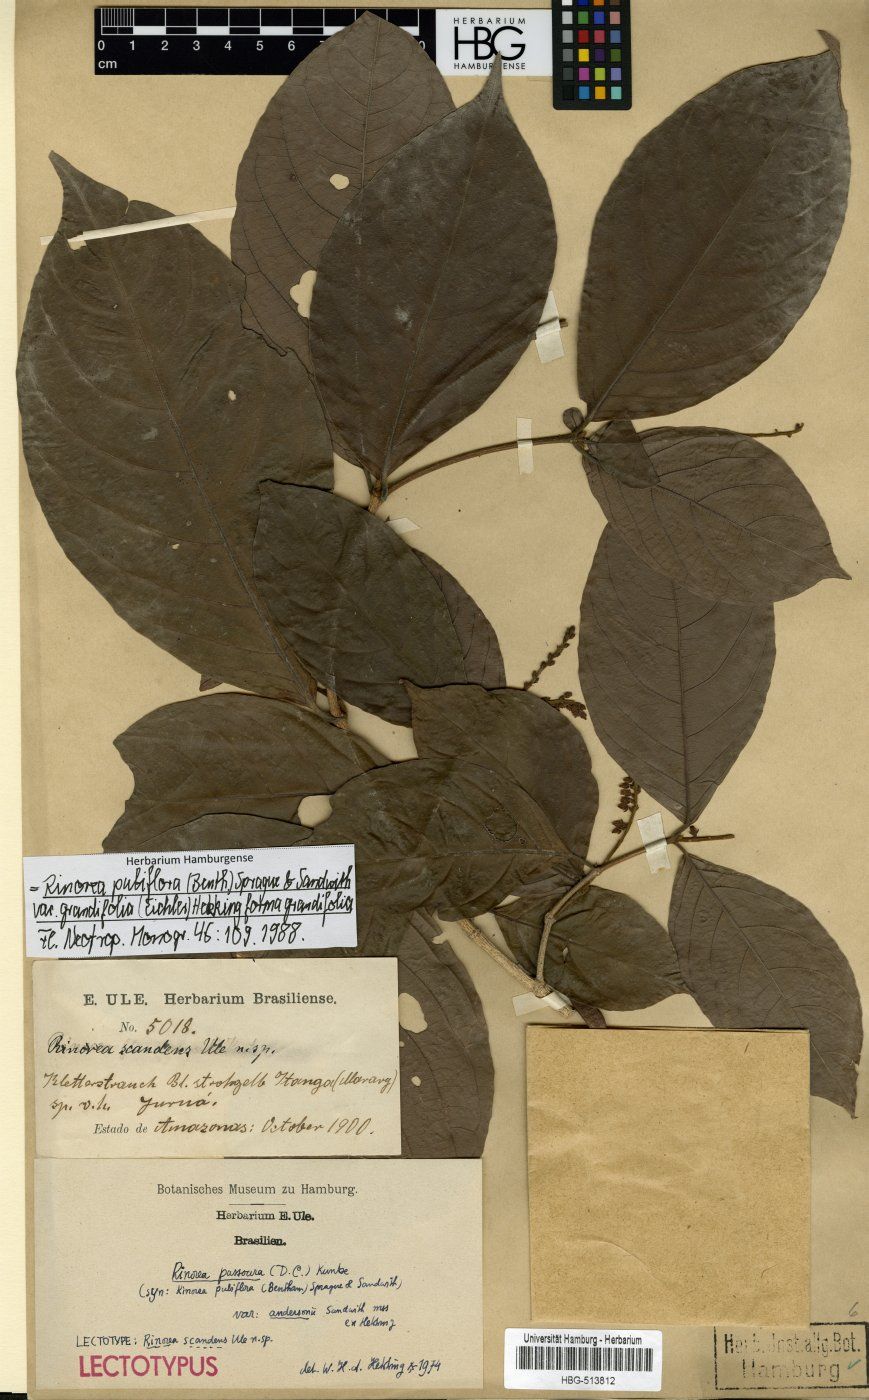 cm
0 10
HERBARIUM
HBG
HAMBURGENSE
Herbarium Hamburgense
= Rinorea pubiflora (Benth.) Sprague & Sandwith
var. grandifolia (Eichler) Hekking forma grandifolia
Fl. Neotrop. Monogr. 46: 109. 1988.
E. ULE. Herbarium Brasiliense.
No. 5018.
Rinorea scandens Ule n. sp.
Kletterstrauch Bl. strohgelb Itanga (Marary)
sp. v. h. Juruá.
Estado de Amazonas: October 1900.
Botanisches Museum zu Hamburg.
Herbarium E. Ule.
Brasilien.
Rinorea passoura (D.C.) Kuntze
(syn: Rinorea pubiflora (Bentham) Sprague & Sandwith)
var: andersonii Sandwith mss
ex Hekking
LECTOTYPE: Rinorea scandens Ule n. sp.
LECTOTYPUS
det. W. H. A. Hekking 1974
Universität Hamburg - Herbarium
HBG-513812
6
Herb. Inst. allg. Bot.
Hamburg